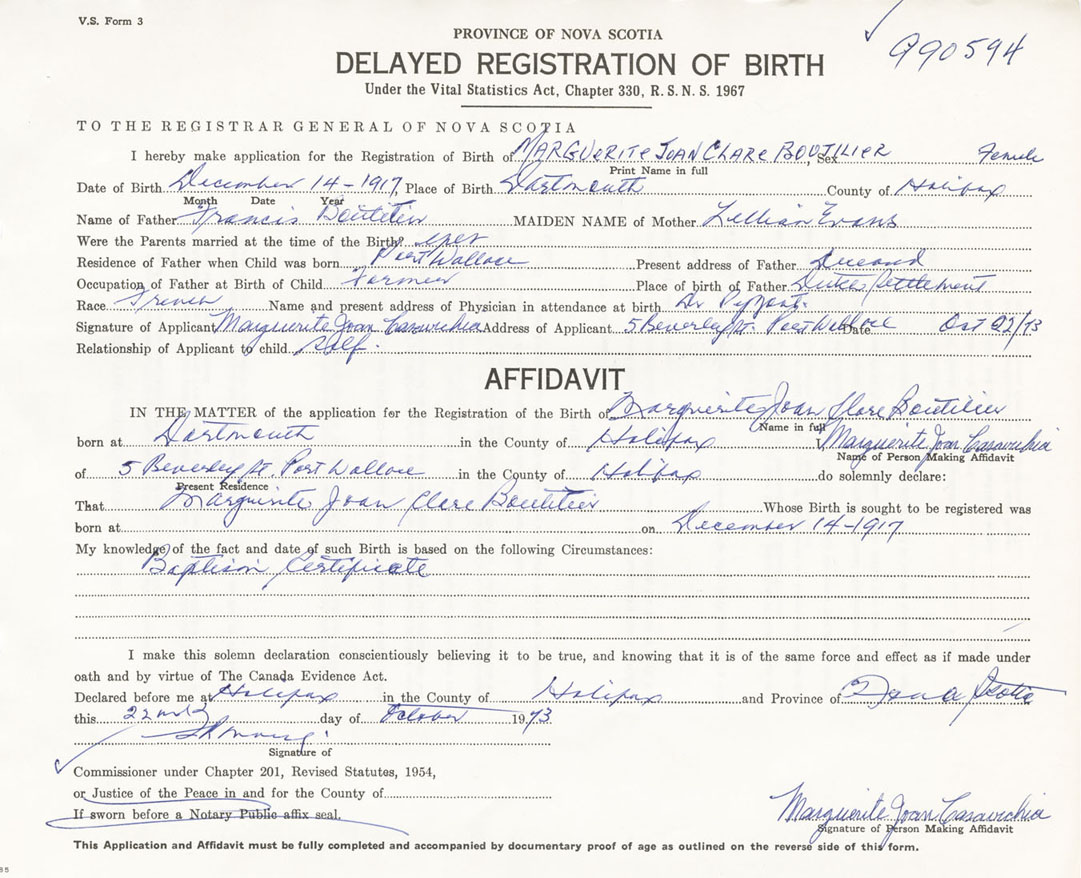 V.S. Form 3
990594
PROVINCE OF NOVA SCOTIA
DELAYED REGISTRATION OF BIRTH
Under the Vital Statistics Act, Chapter 330, R. S. N. S. 1967
TO THE REGISTRAR GENERAL OF NOVA SCOTIA
I hereby make application for the Registration of Birth of MARGUERITE JOAN CLARE BOUTILIER, Sex Female
Print Name in full
Date of Birth December 14-1917, Place of Birth Dartmouth County of Halifax
Month Date Year
Name of Father Francis Boutilier MAIDEN NAME of Mother Lillian Evans
Were the Parents married at the time of the Birth? yes
Residence of Father when Child was born Port Wallace Present address of Father Deceased
Occupation of Father at Birth of Child Farmer Place of birth of Father Settlement
Race French Name and present address of Physician in attendance at birth Dr
Signature of Applicant Marguerite Joan Casavichia Address of Applicant 5 Beverley St. Port Wallace Date Oct 22/73
Relationship of Applicant to child Self.
AFFIDAVIT
IN THE MATTER of the application for the Registration of the Birth of Marguerite Joan Clare Boutilier
Name in full
born at Dartmouth in the County of Halifax I, Marguerite Joan Casavichia
Name of Person Making Affidavit
of 5 Beverley St. Port Wallace in the County of Halifax do solemnly declare:
Present Residence
That Marguerite Joan Clare Boutilier Whose Birth is sought to be registered was
born at on December 14-1917
My knowledge of the fact and date of such Birth is based on the following Circumstances:
Baptism Certificate
I make this solemn declaration conscientiously believing it to be true, and knowing that it is of the same force and effect as if made under
oath and by virtue of The Canada Evidence Act.
Declared before me at Halifax in the County of Halifax and Province of Nova Scotia
this 22nd day of October 1973
Signature of
Commissioner under Chapter 201, Revised Statutes, 1954,
or Justice of the Peace in and for the County of
If sworn before a Notary Public affix seal.
Marguerite Joan Casavichia
Signature of Person Making Affidavit
This Application and Affidavit must be fully completed and accompanied by documentary proof of age as outlined on the reverse side of this form.
85